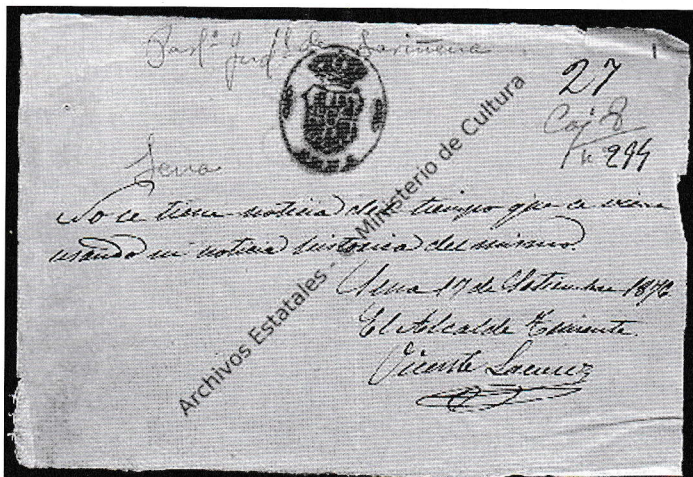 Part.º Jud.l de Sariñena
27
Caj 8
nº 294
Sena
No se tiene noticia del tiempo que se viene
usando ni noticia historica del mismo.
Sena 17 de Setiembre 1876.
El Alcalde Teniente
Vicente
Archivos Estatales - Ministerio de Cultura